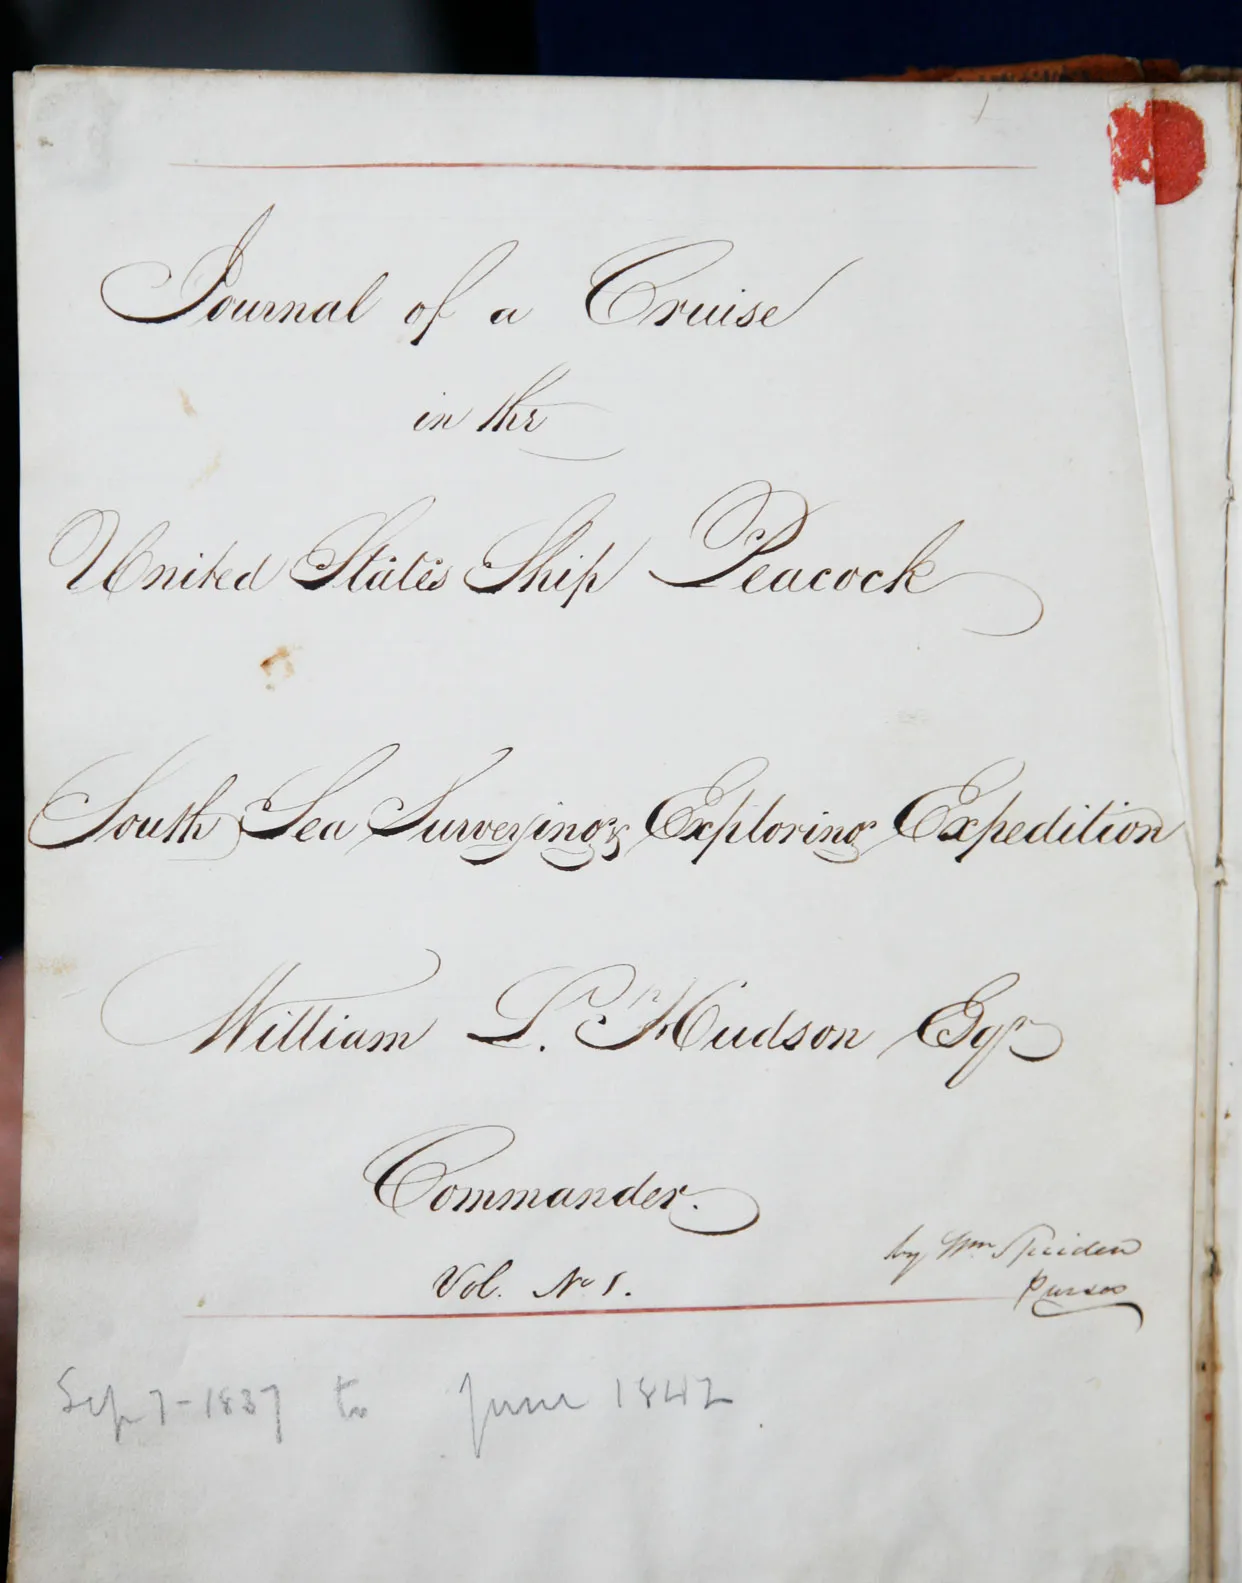 Journal of a Cruise
in the
United States Ship Peacock
South Sea Surveying & Exploring Expedition
William L. Hudson Esqr
Commander.
Vol. No 1.
by Wm Speiden
Purser
Sep 7-1837 to June 1842.